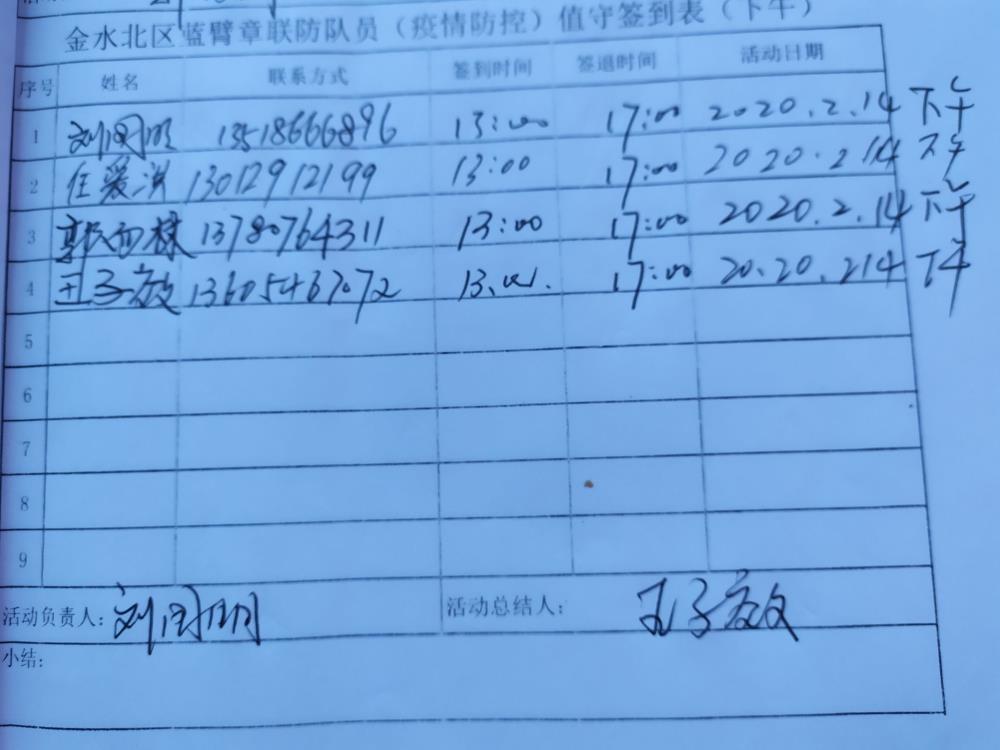 金水北区蓝臂章联防队员（疫情防控）值守签到表（下午）
序号 姓名 联系方式 签到时间 签退时间 活动日期
1 刘同明 13518666896 13:00 17:00 2020.2.14 下午
2 任爱洪 13012912199 13:00 17:00 2020.2.14 下午
3 郭西栋 13780764311 13:00 17:00 2020.2.14 下午
4 王子效 13605463072 13.00. 17:00 20.20.214 下午
5
6
7
8
9
活动负责人：刘同明 活动总结人：王子效
小结：